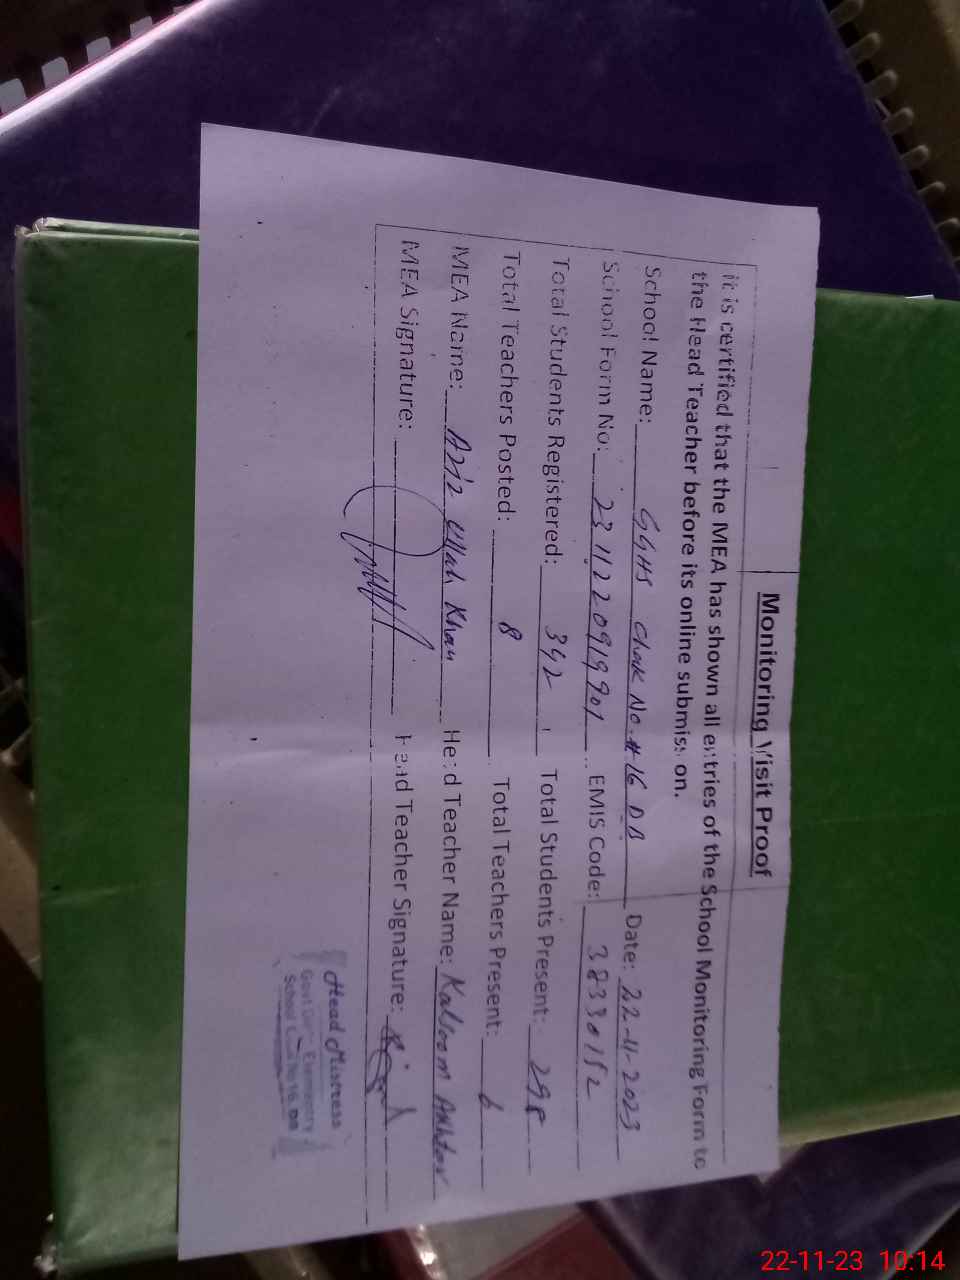 Monitoring Visit Proof
it is certified that the MEA has shown all entries of the School Monitoring Form to
the Head Teacher before its online submission.
School Name: GGHS Chak No.# 16 DB Date: 22-11-2023
School Form No: 2311220919901 EMIS Code: 38330152
Total Students Registered: 342 Total Students Present: 298
Total Teachers Posted: 8 Total Teachers Present: 6
MEA Name: Aziz Ullah Khan Head Teacher Name: Kalsoom Akhtar
MEA Signature: Head Teacher Signature:
Head Mistress
Govt Girls Elementary
School Chak No 16 DB
22-11-23 10:14